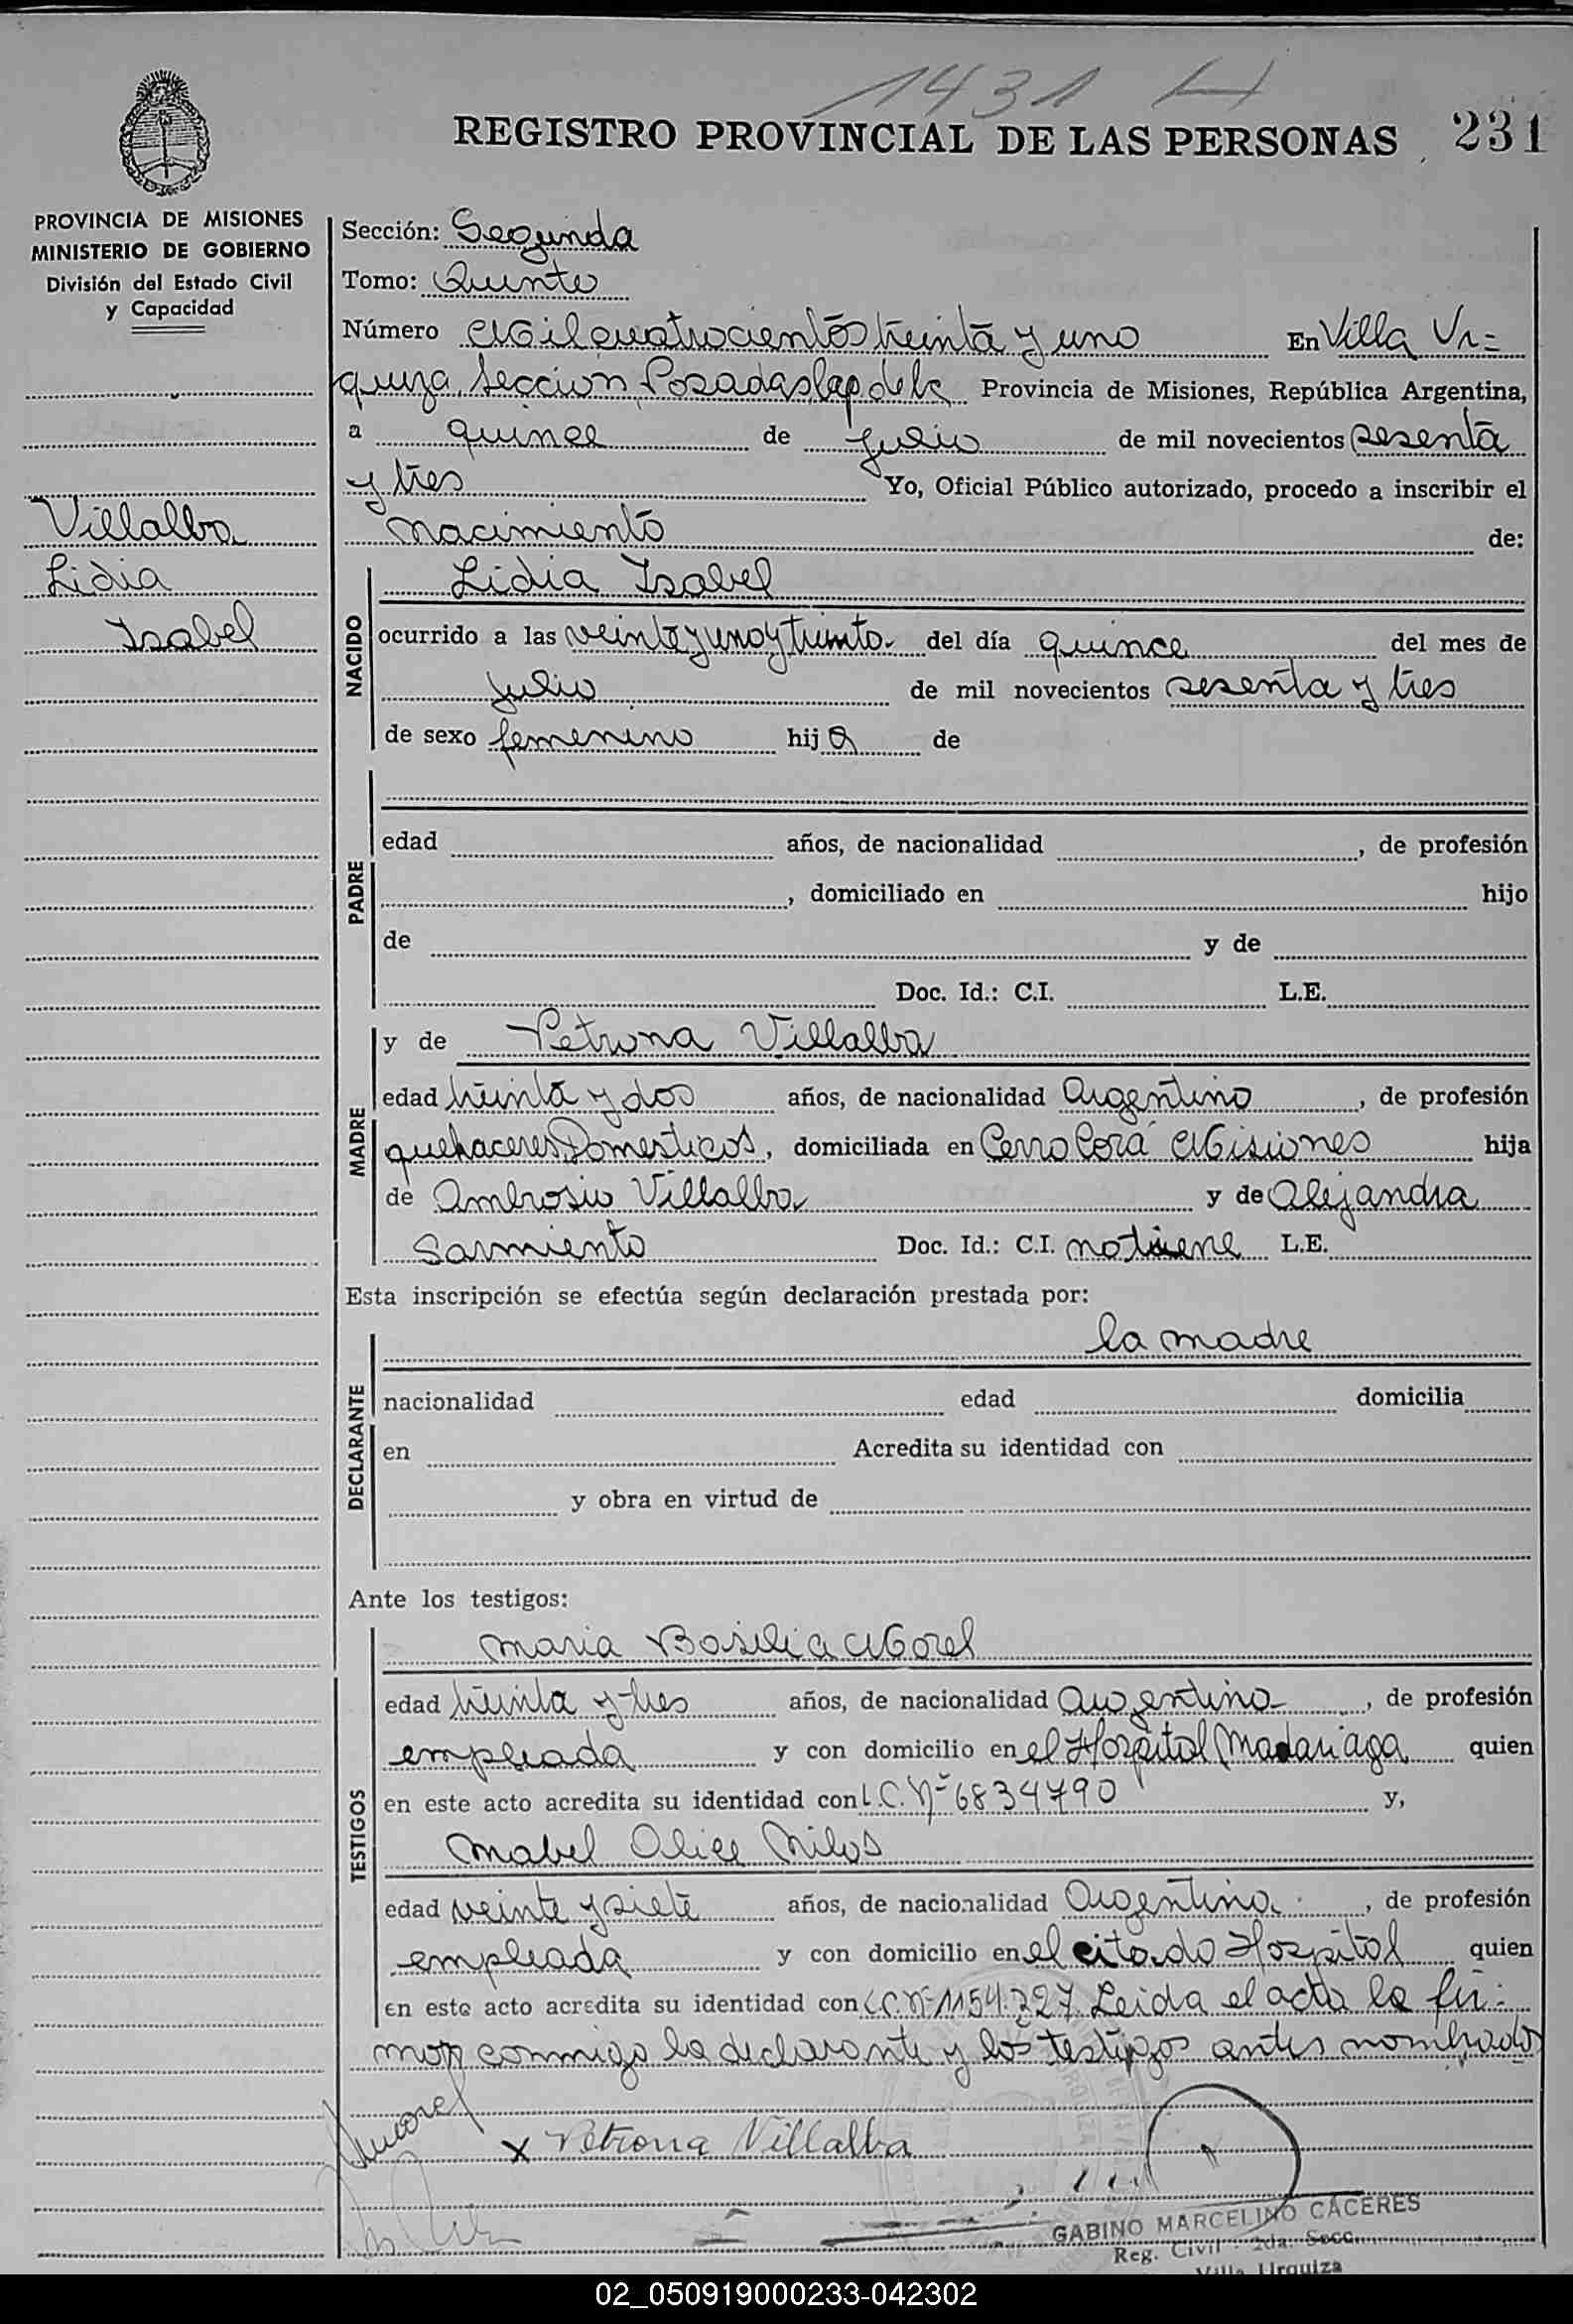 1431 H
REGISTRO PROVINCIAL DE LAS PERSONAS 231
PROVINCIA DE MISIONES
MINISTERIO DE GOBIERNO
División del Estado Civil
y Capacidad
Villalba
Lidia
Isabel
Sección: Segunda
Tomo: Quinto
Número Mil cuatrocientos treinta y uno En Villa Ur=
quiza, Seccion Posadas Cap de la Provincia de Misiones, República Argentina,
a quince de julio de mil novecientos sesenta
y tres Yo, Oficial Público autorizado, procedo a inscribir el
nacimiento de:
NACIDO
Lidia Isabel
ocurrido a las veinte y uno y treinta del día quince del mes de
julio de mil novecientos sesenta y tres
de sexo femenino hija de
PADRE
edad años, de nacionalidad , de profesión
, domiciliado en hijo
de y de
Doc. Id.: C.I. L.E.
MADRE
y de Petrona Villalba
edad treinta y dos años, de nacionalidad Argentina, de profesión
quehaceres Domesticos, domiciliada en Cerro Corá Misiones hija
de Ambrosio Villalba y de Alejandra
Sarmiento Doc. Id.: C.I. no tiene L.E.
Esta inscripción se efectúa según declaración prestada por:
DECLARANTE
la madre
nacionalidad edad domicilia
en Acredita su identidad con
y obra en virtud de
Ante los testigos:
TESTIGOS
Maria Basilia Morel
edad treinta y tres años, de nacionalidad Argentina, de profesión
empleada y con domicilio en el Hospital Madariaga quien
en este acto acredita su identidad con L.C. Nº 6834790 y,
Mabel Alice Milos
edad veinte y siete años, de nacionalidad Argentina, de profesión
empleada y con domicilio en el citado Hospital quien
en este acto acredita su identidad con L.C. Nº 1154.327. Leida el acta la fir=
man conmigo la declarante y los testigos antes nombrados
Morel
x Petrona Villalba
GABINO MARCELINO CACERES
Reg. Civil 2da. Secc.
Villa Urquiza
02_050919000233-042302